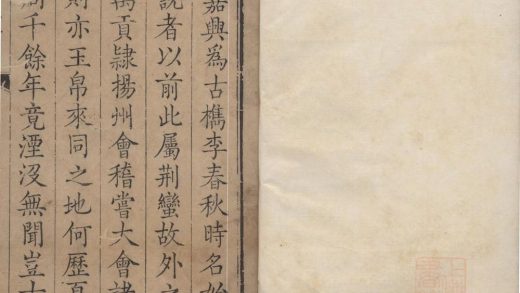 嘉興爲古檇李春秋時名始
說者以前此屬荆蠻故外之
禹貢隷揚州會稽嘗大會諸
則亦玉帛來同之地何歷夏
周千餘年竟湮没無聞豈